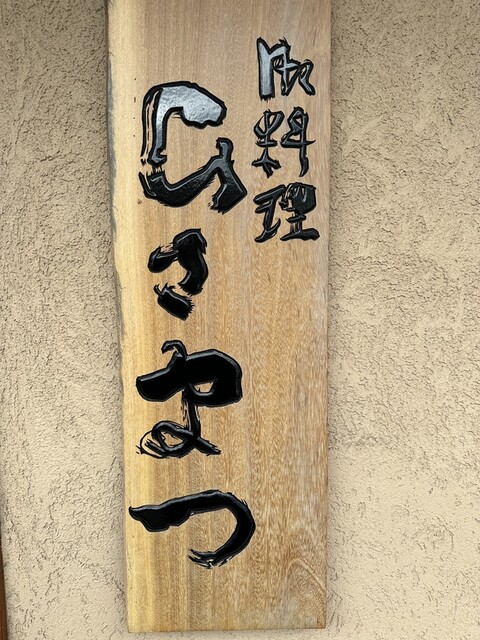 御料理
ひさまつ